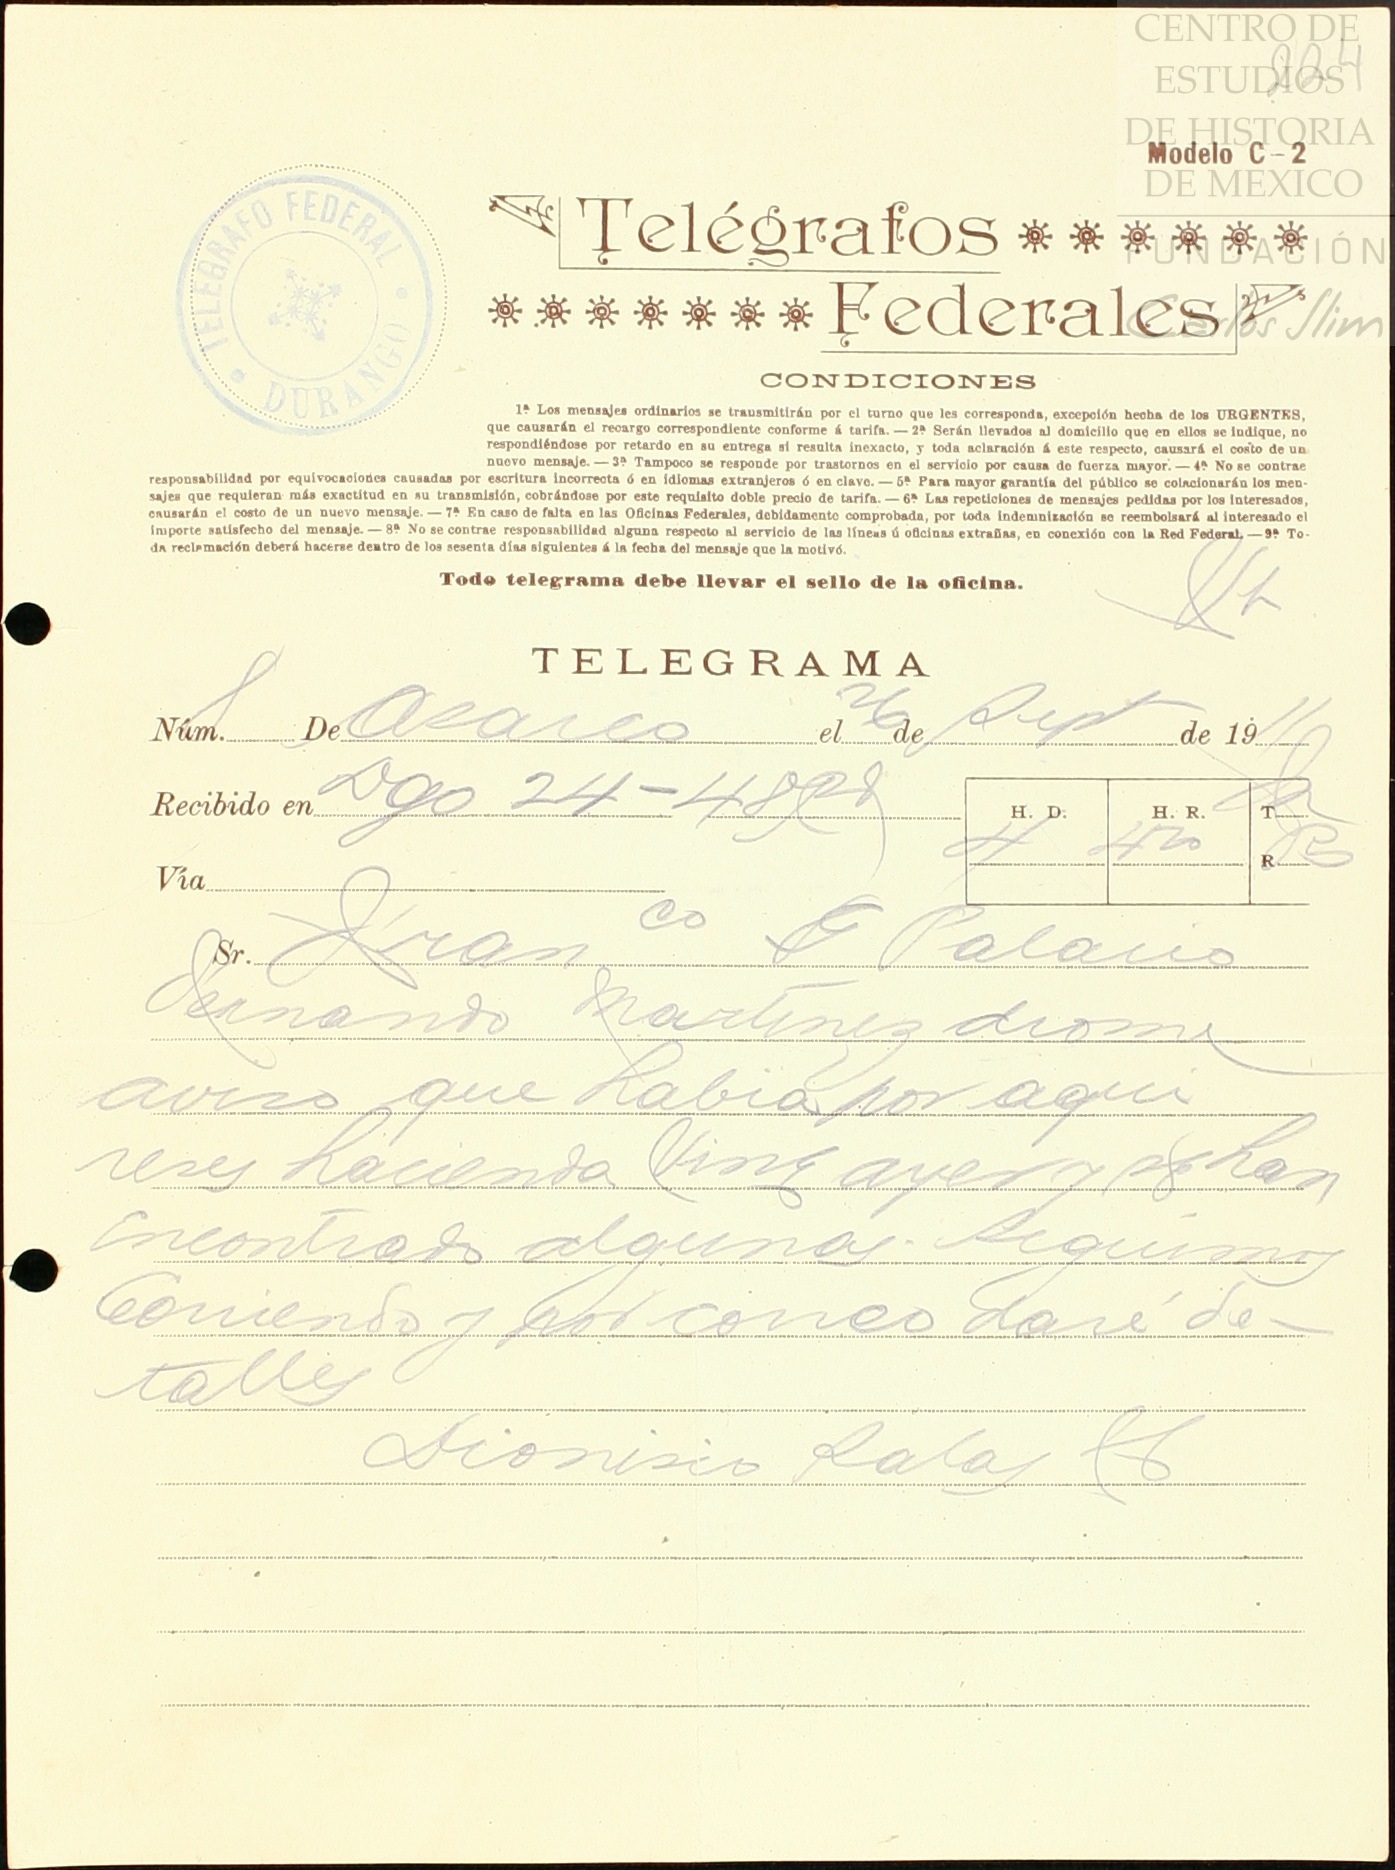 CENTRO DE
ESTUDIOS
DE HISTORIA
DE MEXICO
FUNDACIÓN
Carlos Slim
224
Modelo C-2
TELEGRAFO FEDERAL
DURANGO
Telégrafos
Federales
CONDICIONES
1ª Los mensajes ordinarios se transmitirán por el turno que les corresponda, excepción hecha de los URGENTES,
que causarán el recargo correspondiente conforme á tarifa. — 2ª Serán llevados al domicilio que en ellos se indique, no
respondiéndose por retardo en su entrega si resulta inexacto, y toda aclaración á este respecto, causará el costo de un
nuevo mensaje. — 3ª Tampoco se responde por trastornos en el servicio por causa de fuerza mayor. — 4ª No se contrae
responsabilidad por equivocaciones causadas por escritura incorrecta ó en idiomas extranjeros ó en clave. — 5ª Para mayor garantía del público se colacionarán los men-
sajes que requieran más exactitud en su transmisión, cobrándose por este requisito doble precio de tarifa. — 6ª Las repeticiones de mensajes pedidas por los interesados,
causarán el costo de un nuevo mensaje. — 7ª En caso de falta en las Oficinas Federales, debidamente comprobada, por toda indemnización se reembolsará al interesado el
importe satisfecho del mensaje. — 8ª No se contrae responsabilidad alguna respecto al servicio de las líneas ú oficinas extrañas, en conexión con la Red Federal. — 9ª To-
da reclamación deberá hacerse dentro de los sesenta días siguientes á la fecha del mensaje que la motivó.
Todo telegrama debe llevar el sello de la oficina.
TELEGRAMA
Núm. 8 De Asarco el 26 de Sept de 19
Recibido en Dgo 24-48
H. D. H. R. T
4 4 R
Vía
Sr. Franco G Palacio
Fernando Martínez diome
aviso que había por aqui
reses hacienda ayer y se han
encontrado algunas. Seguimos
corriendo y por correo daré de-
talles
Dionisio Salas